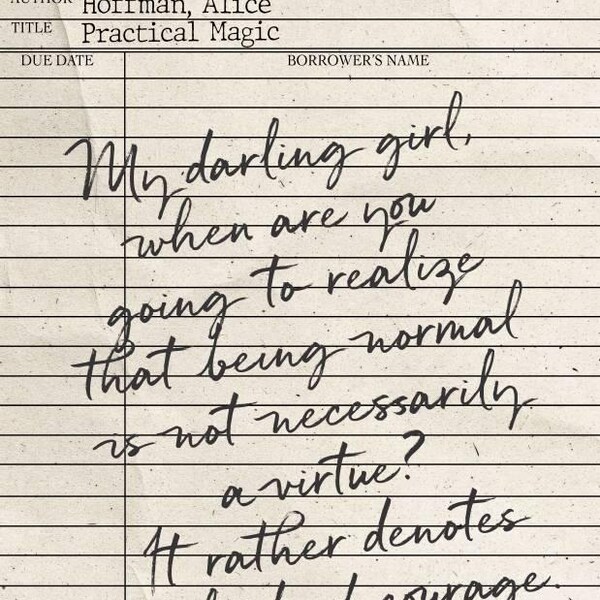 AUTHOR Hoffman, Alice
TITLE Practical Magic
DUE DATE BORROWER'S NAME
My darling girl,
when are you
going to realize
that being normal
is not necessarily
a virtue?
It rather denotes
courage.